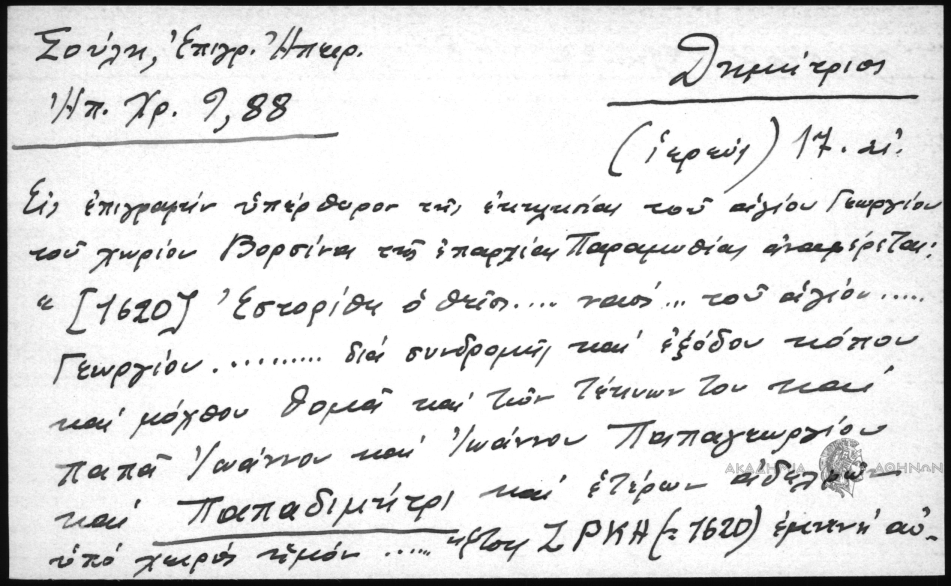 Σούλη, Ἐπιγρ. Ἠπειρ.
Ἠπ. Χρ. 9, 88
Δημήτριος
(ἱερεύς) 17. αἰ.
Εἰς ἐπιγραφήν ὑπέρθυρον τῆς ἐκκλησίας τοῦ ἁγίου Γεωργίου
τοῦ χωρίου Βορσίνα τῆς ἐπαρχίας Παραμυθίας ἀναφέρεται:
"[1620] Ἐστορίθη ὁ θεῖος.... ναός... τοῦ ἁγίου.....
Γεωργίου......... διά συνδρομῆς καί ἐξόδου κόπου
καί μόχθου θομᾶ καί τῶν τέκνων του καί
παπᾶ Ἰωάννου καί Ἰωάννου Παπαγεωργίου
καί Παπαδιμήτρι καί ἑτέρων ἀδελφῶν
ὑπό χειρός ἐμοῦ ..... ΖΡΚΗ (= 1620)
ΑΚΑΔΗΜΙΑ ΑΘΗΝΩΝ